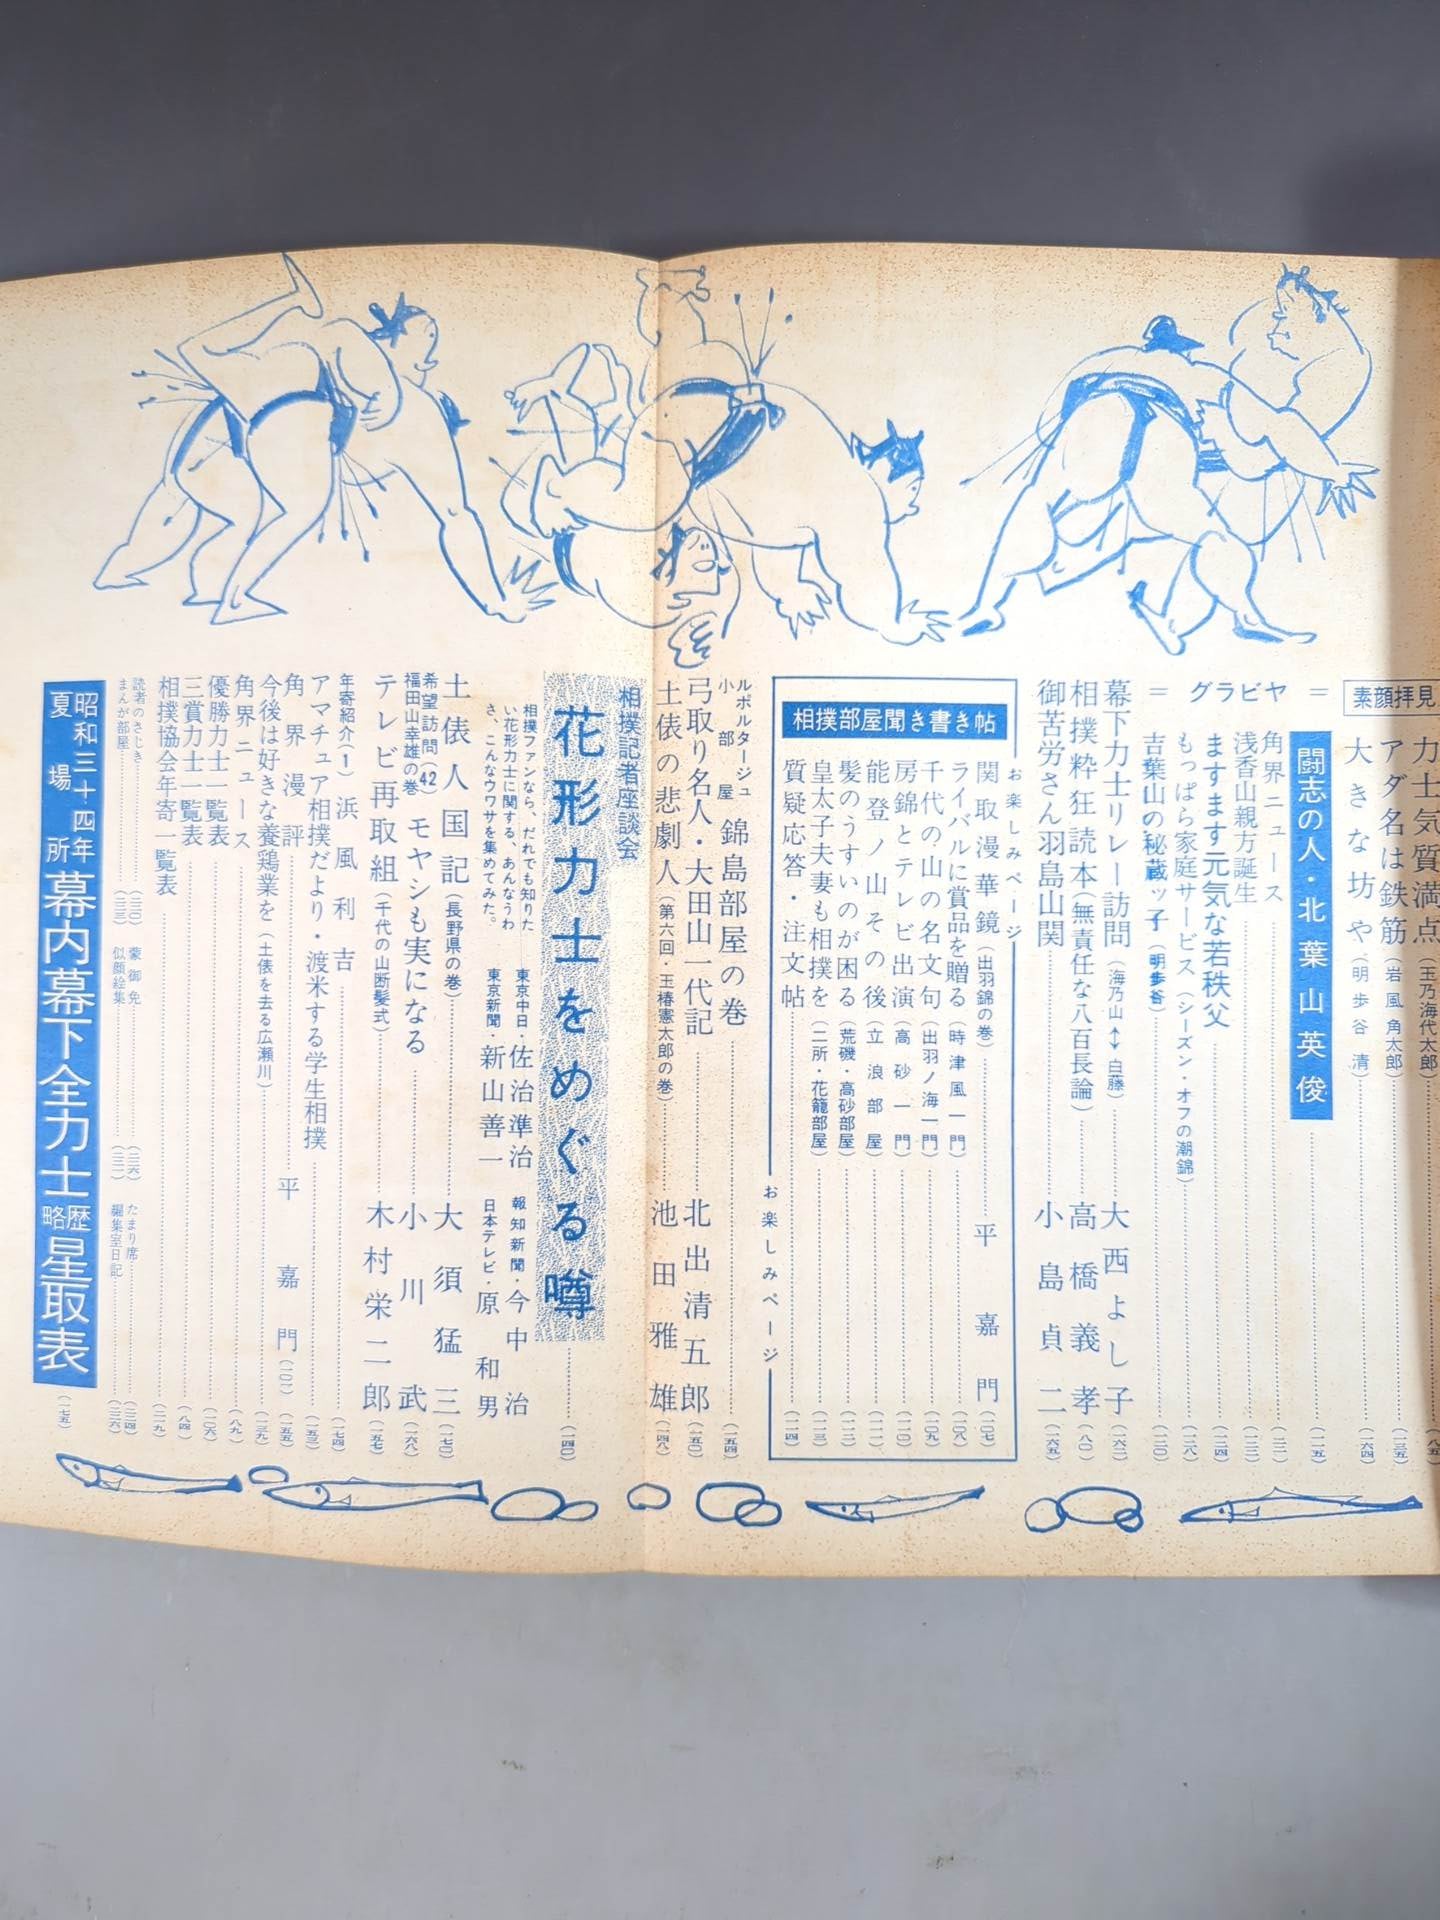 素顔拝見
力士気質満点（玉乃海代太郎）
アダ名は鉄筋（岩風角太郎）
大きな坊や（明歩谷清）
闘志の人・北葉山英俊
＝グラビヤ＝
角界ニュース
浅香山親方誕生
ますます元気な若秩父
もっぱら家庭サービス（シーズン・オフの潮錦）
吉葉山の秘蔵ッ子（明歩谷）
幕下力士リレー訪問（海乃山↔白藤）大西よし子
相撲粋狂読本（無責任な八百長論）高橋義孝（八〇）
御苦労さん羽島山関 小島貞二（一六五）
お楽しみページ
相撲部屋聞き書き帖
関取漫華鏡（出羽錦の巻）平嘉門（一〇七）
ライバルに賞品を贈る（時津風一門）（一〇八）
千代の山の名文句（出羽ノ海一門）（一〇九）
房錦とテレビ出演（高砂一門）（一一〇）
能登ノ山その後（立浪部屋）（一一一）
髪のうすいのが困る（荒磯・高砂部屋）（一一二）
皇太子夫妻も相撲を（二所・花籠部屋）（一一三）
質疑応答・注文帖（一一四）
お楽しみページ
ルポルタージュ
小部屋 錦島部屋の巻（一五四）
弓取り名人・大田山一代記 北出清五郎（一五〇）
土俵の悲劇人（第六回・玉椿憲太郎の巻）池田雅雄（一四八）
相撲記者座談会
花形力士をめぐる噂（一四〇）
相撲ファンなら、だれでも知りた
い花形力士に関する、あんなうわ
さ、こんなウワサを集めてみた。
東京中日・佐治準治
東京新聞・新山善一
報知新聞・今中治
日本テレビ・原和男
土俵人国記（長野県の巻）大須猛三（一七〇）
希望訪問（42）
福田山幸雄の巻 モヤシも実になる 小川武（一六八）
テレビ再取組（千代の山断髪式）木村栄二郎（一五七）
年寄紹介（1）浜風利吉（一七四）
アマチュア相撲だより・渡米する学生相撲（一五三）
角界漫評 平嘉門（一〇二）（一五五）
今後は好きな養鶏業を（土俵を去る広瀬川）（一三九）
角界ニュース（八九）
優勝力士一覧表（二〇六）
三賞力士一覧表（八四）
相撲協会年寄一覧表（二一九）
読者のさじき（二二〇）
まんが部屋（二二三）
蒙御免（二二六）
似顔絵集（二二一）
たまり席（二三四）
編集室日記（二三六）
昭和三十四年
夏場所 幕内幕下全力士略歴星取表（一七五）